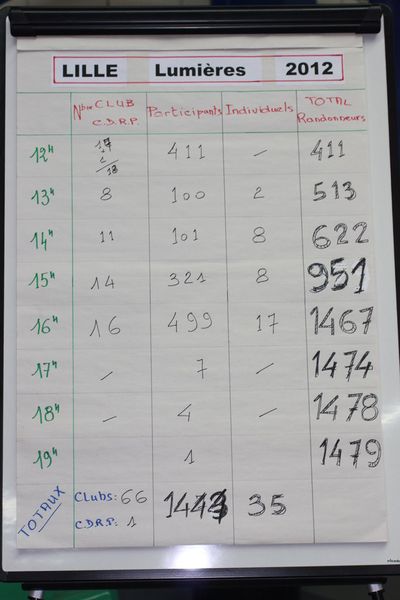 LILLE Lumières 2012
Nbre CLUB Participants Individuels TOTAL
C.D.R.P. Randonneurs
12H 17 411 – 411
1
/18
13H 8 100 2 513
14H 11 101 8 622
15H 14 321 8 951
16H 16 499 17 1467
17H – 7 – 1474
18H – 4 – 1478
19H 1 1479
TOTAUX Clubs: 66 1443 35
C.D.R.P: 1